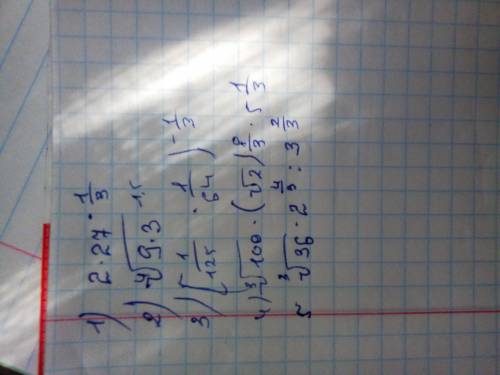 1) 2·27^{\frac{1}{3}}
2) \sqrt[4]{9}·3^{1,5}
3) (\frac{1}{125}·\frac{1}{64})^{-\frac{1}{3}}
4) \sqrt[3]{100}·(\sqrt{2})^{\frac{8}{3}}·5^{\frac{1}{3}}
5 \sqrt[3]{36}·2^{\frac{4}{3}}:3^{\frac{2}{3}}